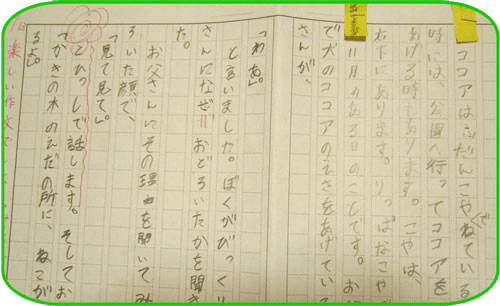 ココアはふだんこやでねている
時には、公園へ行ってココアを
あげる時もあります。こやは、
右下にあります。りっぱなこや
11月のある日のことです。お
で犬のココアのえさをあげてい
さんが、
「わあ」
と言いました。ぼくがびっくり
さんになぜ、おどろいたかを聞き
た。
お父さんにその理由を聞いてみ
ろいた顔で、
「見て見て」
とひっしで話します。そしてお
「かきの木のえだの所に、ねこが
るよ」
楽しい作文で